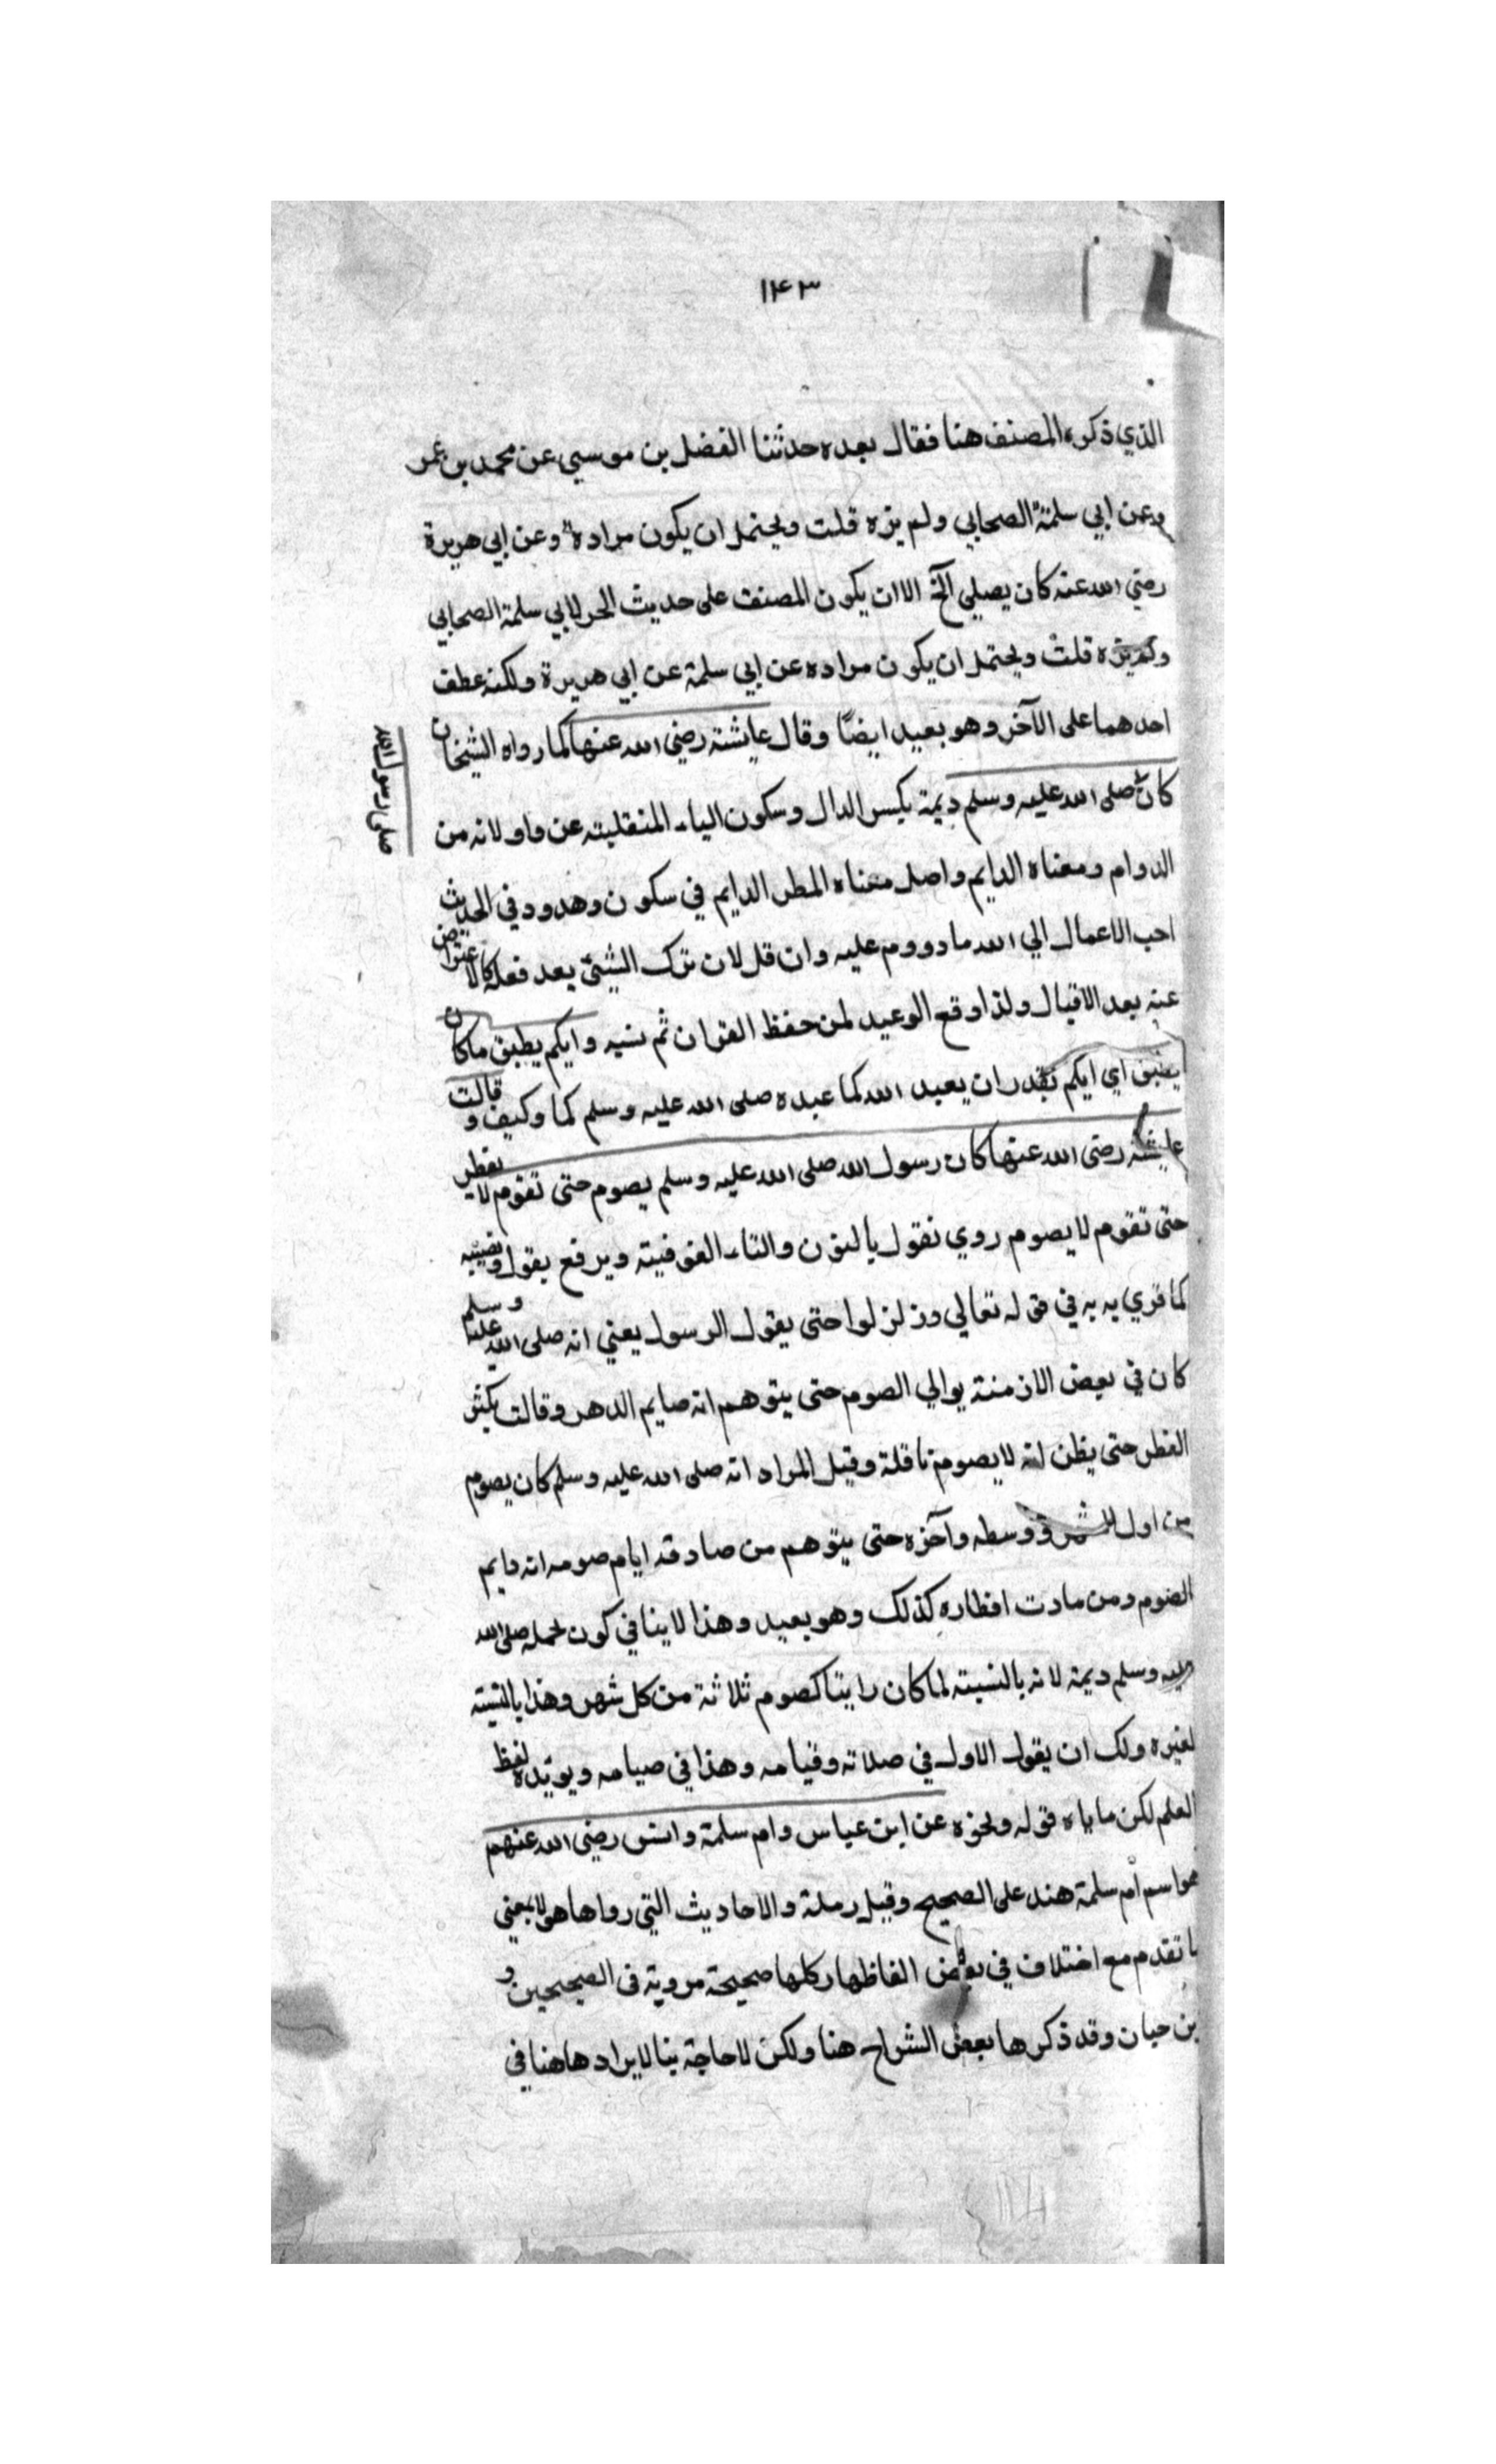 ١٤٣
الذي ذكره المصنف هنا فقال بعده حدثنا الفضل بن موسي عن محمد بن عمر
وعن ابي سلمة الصحابي ولم يزه قلت ويحتمل ان يكون مراده وعن ابي هريرة
رضي الله عنه كان يصلي الخ الا ان يكون المصنف على حديث الحر لابي سلمة الصحابي
ولم يزه قلت ويحتمل ان يكون مراده عن ابي سلمة عن ابي هريرة ولكنه عطف
احدهما على الآخر وهو بعيد ايضًا وقال عايشة رضي الله عنها كما رواه الشيخان
كان صلى الله عليه وسلم ديمة بكسر الدال وسكون الياء المنقلبته عن واو لانه من
صلى رسول الله
الدوام ومعناه الدايم واصل معناه المطر الدايم في سكون وهدو وفي الحديث
احب الاعمال الي الله ما دووم عليه وان قل لان ترك الشئ بعد فعله كالاعتراض
عنه بعد الاقبال ولذا وقع الوعيد لمن حفظ القران ثم نسيه وايكم يطيق ما كان
يطيق اي ايكم يقدر ان يعبد الله كما عبده صلى الله عليه وسلم كما وكيف و قالت
عايشة رضى الله عنها كان رسول الله صلى الله عليه وسلم يصوم حتى تقوم لا يفطر
حتى تقوم لا يصوم روي نقول بالنون والتاء الفوفيته ويرفع يقول ونصبه
كما قري به به في قوله تعالي وزلزلوا حتى يقول الرسول يعني انه صلى الله عليه وسلم
كان في بعض الازمنة يوالي الصوم حتى يتوهم انه صايم الدهر وقالت يكثر
الفطر حتى يظن انه لا يصوم نافلة وقيل المراد انه صلى الله عليه وسلم كان يصوم
من اول الشهر ووسطه وآخره حتى يتوهم من صادفه ايام صومه انه دايم
الصوم ومن مادت افطاره كذلك وهو بعيد وهذا لا ينافي كون عمله صلى الله
عليه وسلم ديمة لانه بالنسبته لما كان راتبا كصوم ثلاثة من كل شهر وهذا بالنسبته
لغيره ولك ان يقول الاول في صلاته وقيامه وهذا في صيامه ويويده لفظ
العلم لكن ما ياباه قوله ونحوه عن ابن عباس وام سلمة وانس رضي الله عنهم
هو اسم ام سلمة هند على الصحيح وقيل رملة والاحاديث التي رواها هولا بمعني
ما تقدم مع اختلاف في بعض الفاظها وكلها صحيحة مروية فى الصحيحين و
بن حبان وقد ذكرها بعض الشراح هنا ولكن لا حاجة بنا لايرادها هنا في